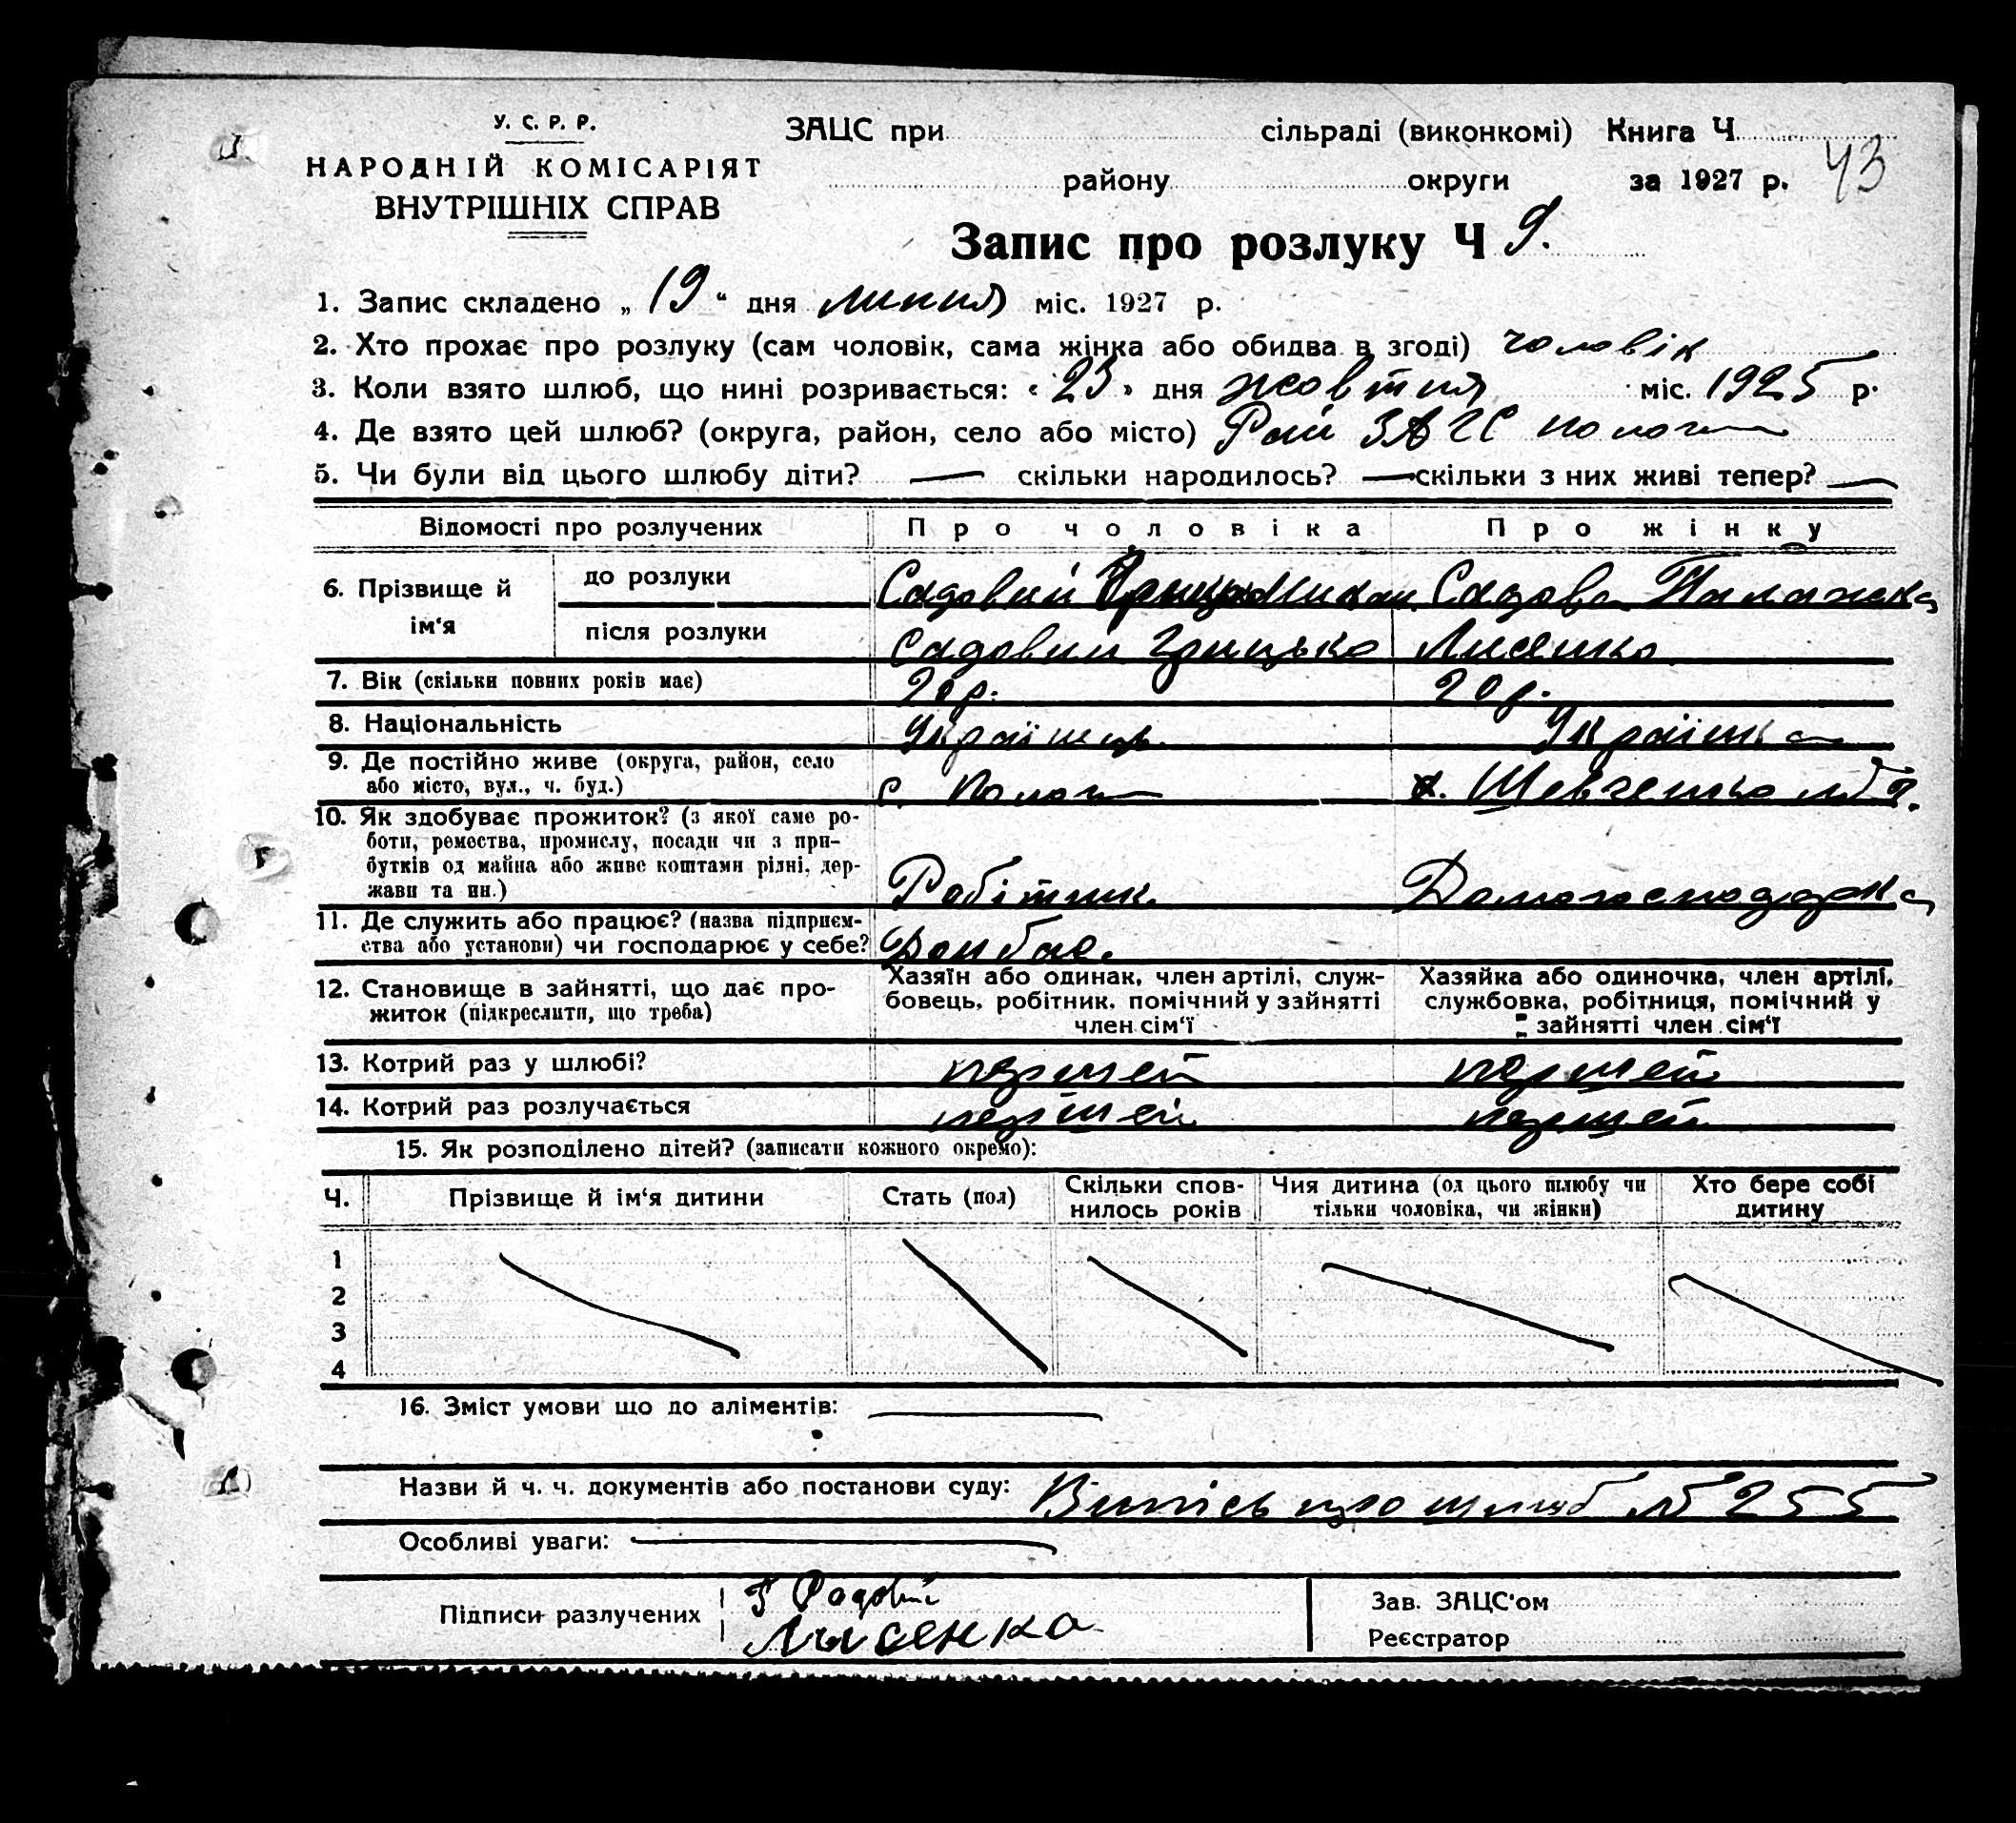 У. С. Р. Р.
НАРОДНІЙ КОМІСАРІЯТ
ВНУТРІШНІХ СПРАВ
ЗАЦС при сільраді (виконкомі) Книга Ч.
району округи за 1927 р. 43
Запис про розлуку Ч 9.
1. Запис складено „19“ дня липня міс. 1927 р.
2. Хто прохає про розлуку (сам чоловік, сама жінка або обидва в згоді) чоловік
3. Коли взято шлюб, що нині розривається: « 23 » дня жовтня міс. 1925 р.
4. Де взято цей шлюб? (округа, район, село або місто) Рай ЗАГС Пологи
5. Чи були від цього шлюбу діти? — скільки народилось? — скільки з них живі тепер? —
Відомості про розлучених Про чоловіка Про жінку
6. Прізвище й ім‘я
до розлуки Садовий Грицько Садова Палажка
після розлуки Садовий Грицько Лисенко
7. Вік (скільки повних років має) 20 р. 20 р.
8. Національність Українець Українка
9. Де постійно живе (округа, район, село
або місто, вул., ч. буд.) с. Пологи Шевченко № 2.
10. Як здобуває прожиток? (з якої саме ро-
боти, ремества, промислу, посади чи з при-
бутків од майна або живе коштами рідні, дер-
жави та ин.) Робітник Домогосподарка
11. Де служить або працює? (назва підприєм-
ства або установи) чи господарює у себе? Донбас.
12. Становище в зайнятті, що дає про-
житок (підкреслити, що треба)
Хазяїн або одинак, член артілі, служ-
бовець, робітник, помічний у зайнятті
член сім‘ї
Хазяйка або одиночка, член артілі,
службовка, робітниця, помічний у
зайнятті член сім‘ї
13. Котрий раз у шлюбі? першей першей
14. Котрий раз розлучається першей першей
15. Як розподілено дітей? (записати кожного окремо):
Ч. Прізвище й ім‘я дитини Стать (пол) Скільки спов-
нилось років Чия дитина (од цього шлюбу чи
тільки чоловіка, чи жінки) Хто бере собі
дитину
1
2
3
4
16. Зміст умови що до аліментів: —
Назви й ч. ч. документів або постанови суду: Випісь про шлюб № 255
Особливі уваги: —
Підписи разлучених Г Садовий
Лисенка
Зав. ЗАЦС‘ом
Реєстратор